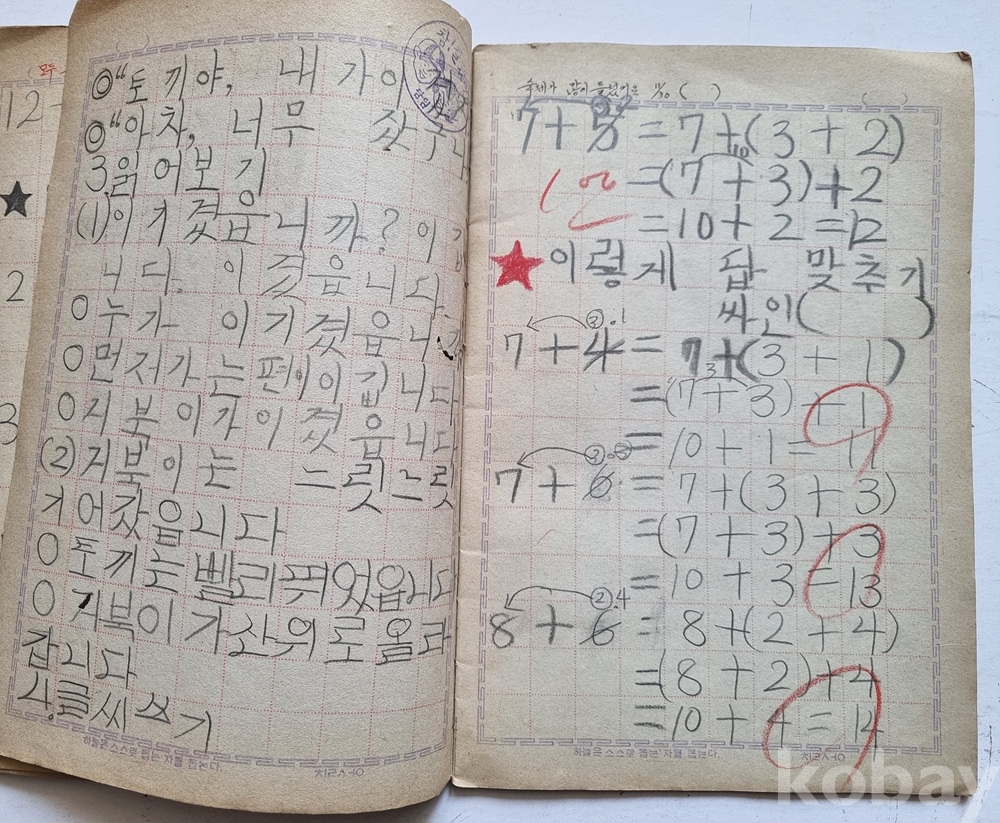 12
2
3
◎"토끼야, 내가 이
◎"아차, 너무 잤구나
3.읽어보기
(1)이겼습니까? 이
니다. 이 겼읍니다
○누가 이기 졌읍니
○먼저가는편이이깁니다
○거북이가이 겼읍니다
(2)거북이는 느릿느릿
기어갔읍니다
○토끼는빨리뛰었읍니다
○거북이가산위로올라
갑니다
4.글씨쓰기
하늘은 스스로 돕는 자를 돕는다.
숙제가 많이 틀렸어요 ( )
7+5=7+(3+2)
10
=(7+3)+2
=10+2=12
★이렇게 답 맞추기
싸인( )
③.1
7+4=7+(3+1)
=(7+3)+1
=10+1=11
③.③
7+6=7+(3+3)
=(7+3)+3
=10+3=13
②.4
8+6=8+(2+4)
=(8+2)+4
=10+4=14
하늘은 스스로 돕는 자를 돕는다.
kobay